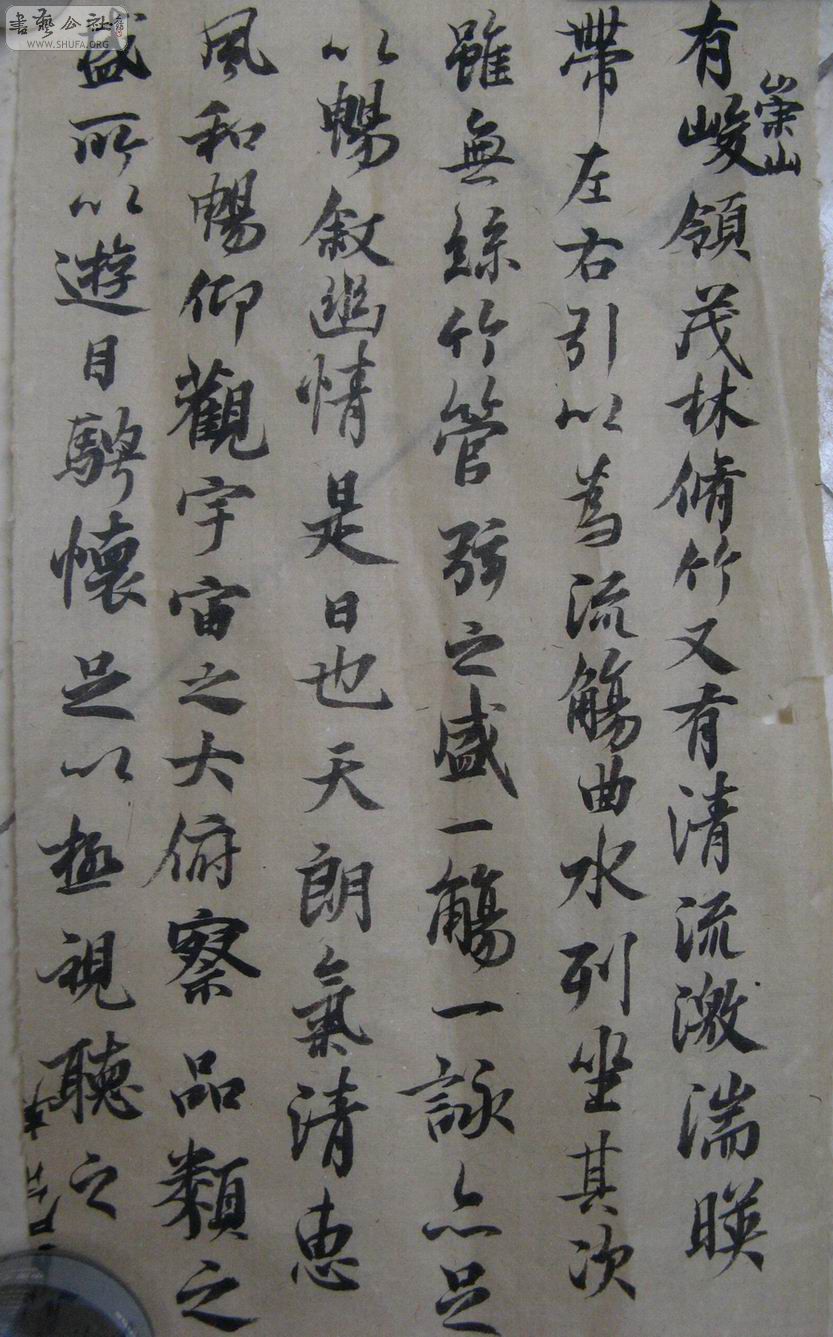 書藝公社
WWW.SHUFA.ORG
崇山
有峻領茂林脩竹又有清流激湍暎
帶左右引以為流觴曲水列坐其次
雖無絲竹管弦之盛一觴一詠亦足
以暢敘幽情是日也天朗氣清惠
風和暢仰觀宇宙之大俯察品類之
盛所以遊目騁懷足以極視聽之